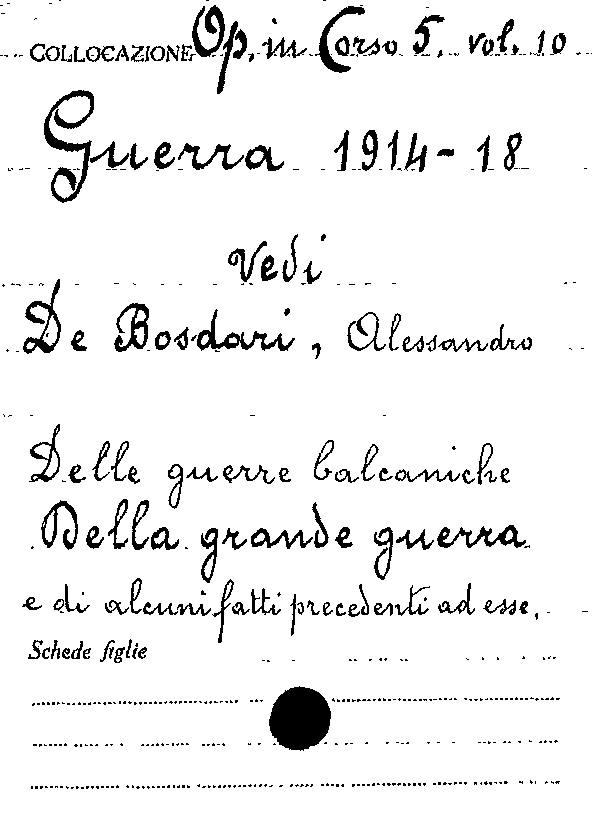 COLLOCAZIONE Op. in Corso 5. vol. 10
Guerra 1914-18
Vedi
De Bosdari, Alessandro
Delle guerre balcaniche
Della grande guerra
e di alcuni fatti precedenti ad esse.
Schede figlie